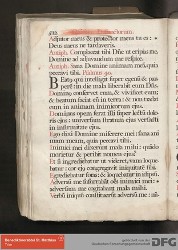 Adjutor meus & protector meus tu es:
Deus meus ne tardaveris.
Antiph. Complaceat tibi Dñe ut eripias me.
Domine ad adjuvandum me respice.
Antiph. Sana Domine animam meam quia
peccavi tibi. Psalmus 40.
Beatus qui intelligit super egenũ & pau
perẽ: in die mala liberabit eum Dñs.
Dominus conservet eum, & vivificet eum,
& beatum faciat eũ in terra: & non tradat
eum in animam inimicorum ejus.
Dominus opem ferat illi super lectũ dolo-
ris ejus: universum stratum ejus versasti
in infirmitate ejus.
Ego dixi Domine miserere mei: sana ani
mam meam, quia peccavi tibi.
Inimici mei dixerunt mala mihi: quando
morietur & peribit nomen ejus?
Et si ingrediebatur ut videret, vana loque
batur: cor ejus congregavit iniquitatẽ sibi.
Egrediebatur foras: & loquebatur in idipsũ.
Adversũ me susurrabãt oẽs inimici mei:
adversum me cogitabant mala mihi.
Verbũ iniquũ constituerũt adversũ me:
DFG